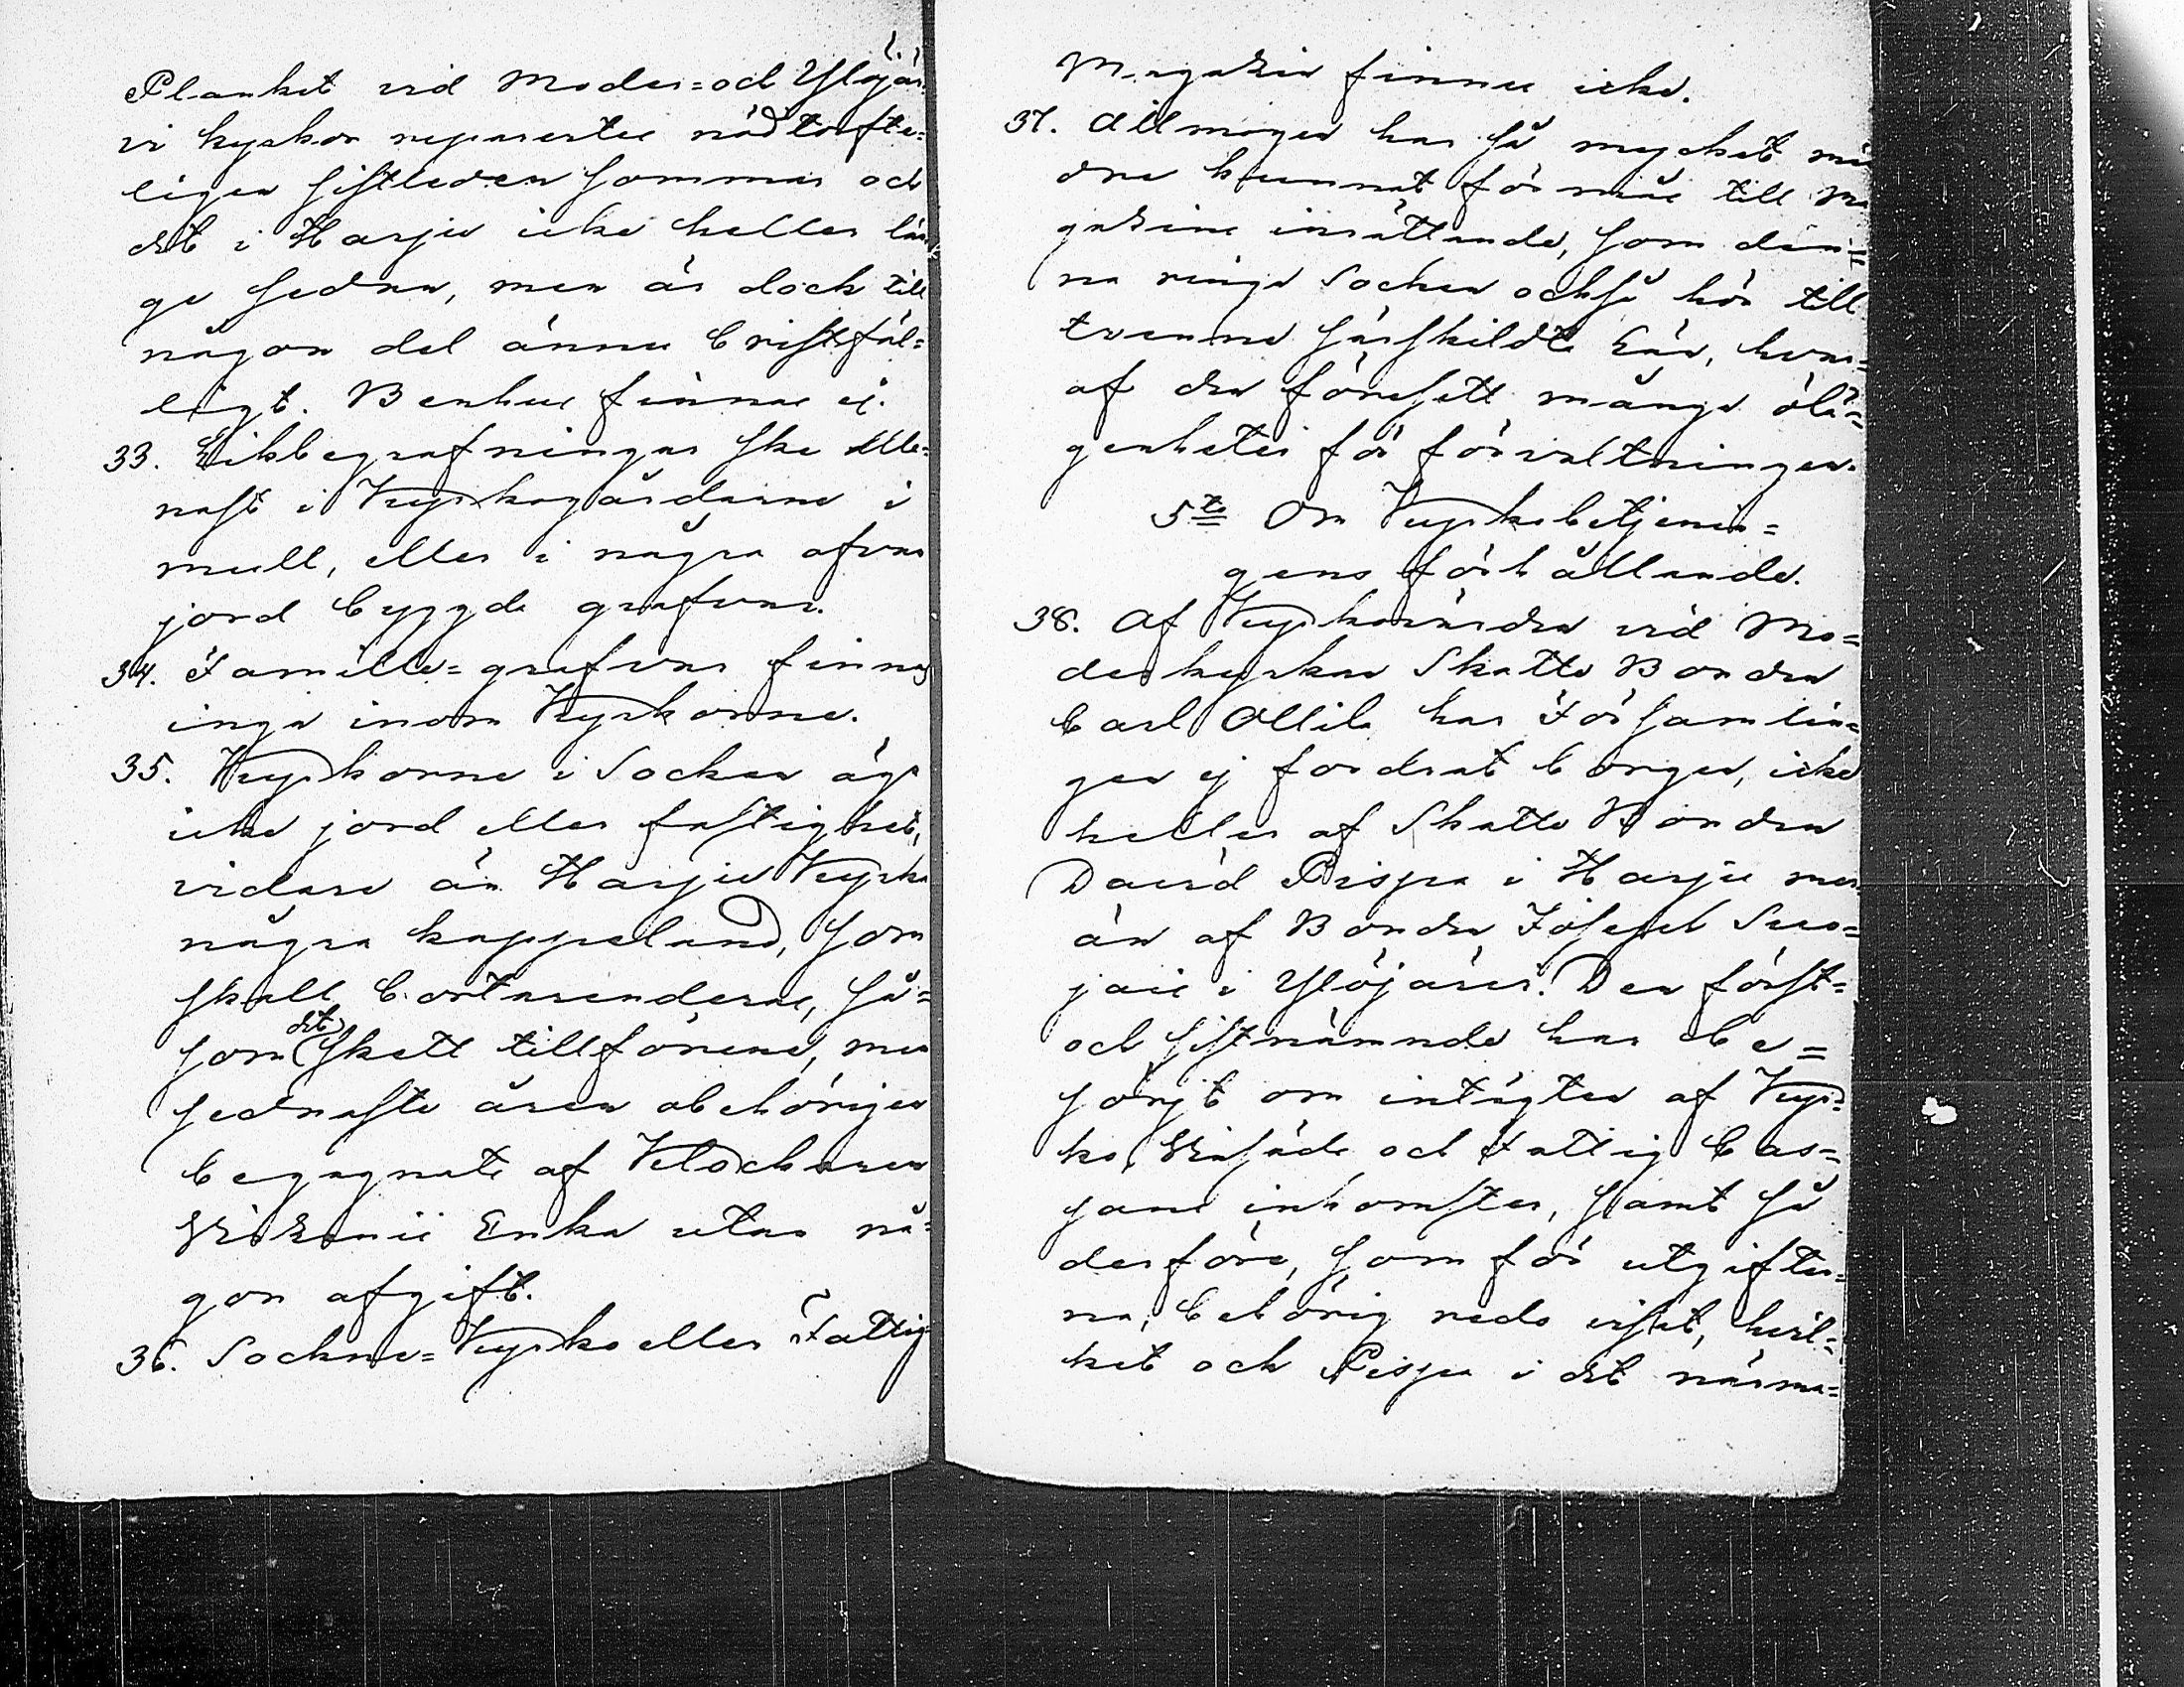 Planket vid Moder=och Ylöjär=
vi kyrkor reparertes nödtorfte=
ligen sistleden sommar och
det i Harju icke heller län=
ge sedan, men är dock till
någon del ännu bristfäl=
ligt. Benhus finnas ej.
33. Likbegrafningar ske alle=
nast i Kyrkogårdarne i
mull, eller i några ofvan
jord byggde grafvar.
34. Famille=grafvar finnas
inga inom Kyrkorne.
35. Kyrkorne i Socken äga
icke jord eller fastighet,
vidare än Harju Kyrka
några kappeland, som
skall bortarenderas, så=
som det skett tillförene, men
sednaste åren obehörigen
begagnats af Klockaren
Enka utan nå=
gon afgift.
36. Sockne= Kyrko eller Fattig
Magazin finnes icke.
37. Allmogen har så mycket min
dre kunnat förmås till Ma
gazins inrättande, som den=
na ringa Socken också hör till
tvenne särskildte Län, hvar=
af den förersett många olä=
genheter för förvaltningen.
5te Om Kyrkobetjenin=
gens förhållande.
38. Af Kyrkovärden vid Mo=
derkyrkan Skatte Bonden
Carl Ollila har Församlin=
gen ej fordrat borgen, icke
heller af Skatte Bonden
David Pispa i Harju mer
än af Bonden Joseph Suo=
jais i Ylöjärvi. Den först=
och sistnämnde har be=
sörjt om intägten af Kyr=
ko, Vinsäds och Fattig Cas=
sans inkomster, samt så
derföre, som för utgifter=
na, behörig redo vist, hvil=
ket och Pispa i det närma=